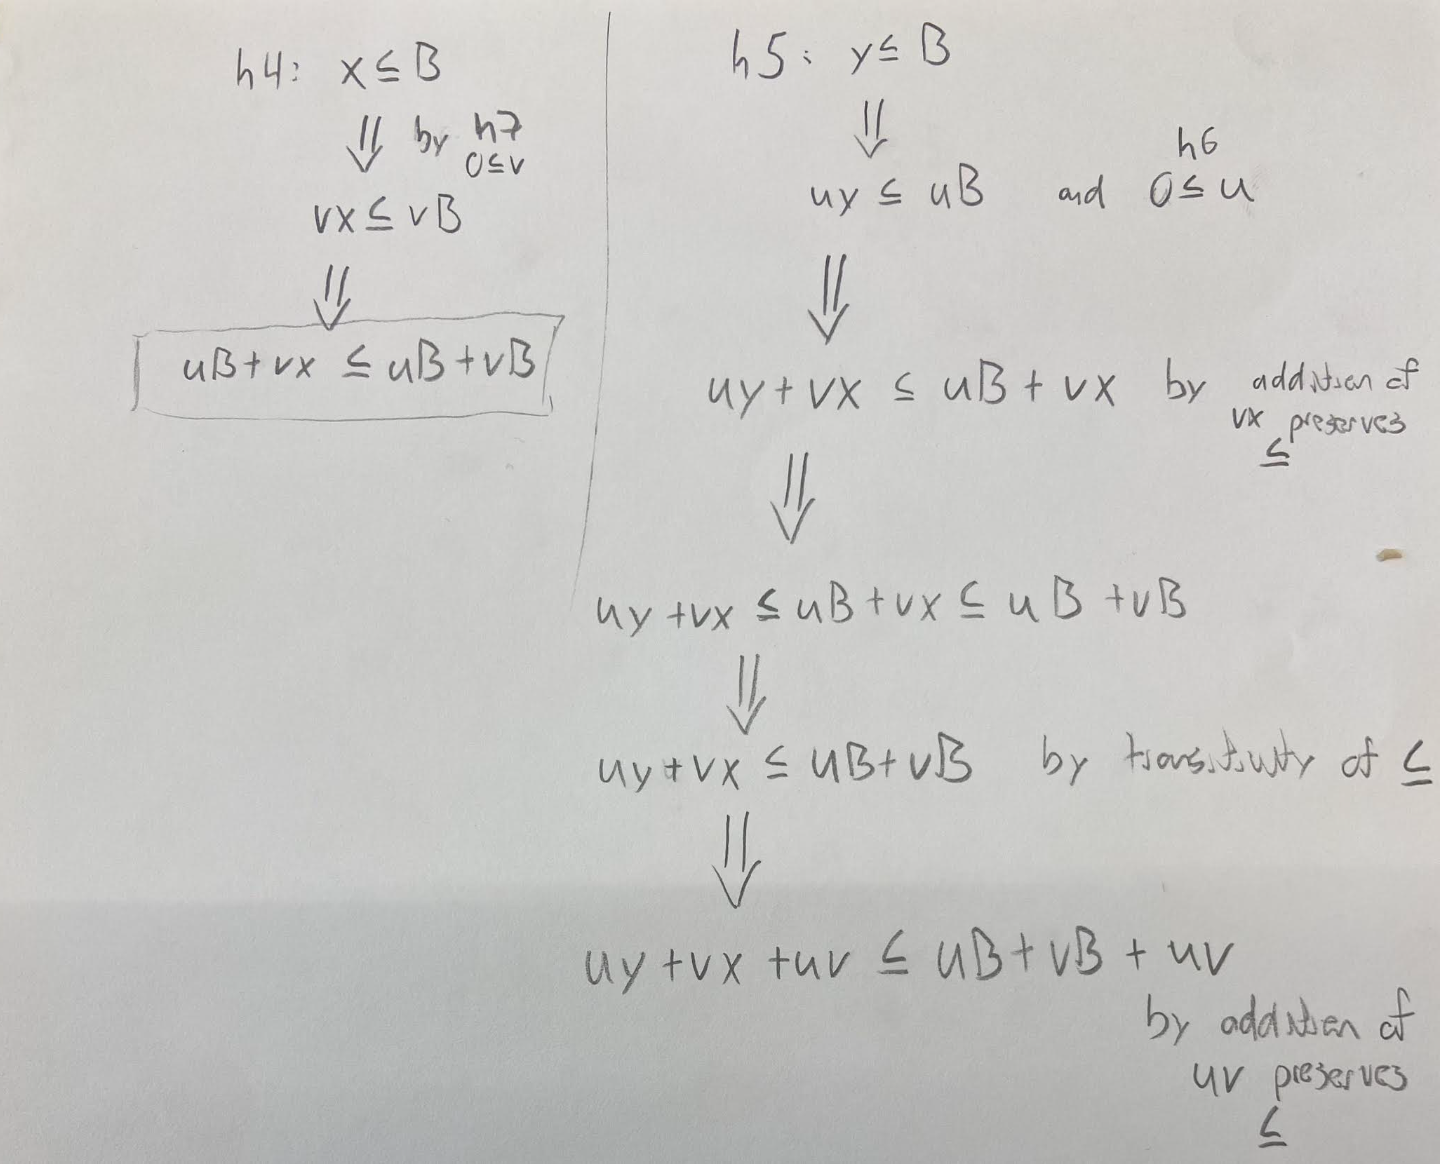 h4: x ≤ B
⇓ by h7
0≤v
vx ≤ vB
⇓
uB+vx ≤ uB+vB
h5: y ≤ B
⇓
uy ≤ uB and 0≤u
h6
⇓
uy+vx ≤ uB+vx by addition of
vx preserves
≤
⇓
uy+vx ≤ uB+vx ≤ uB+vB
⇓
uy+vx ≤ uB+vB by transitivity of ≤
⇓
uy+vx+uv ≤ uB+vB+uv
by addition of
uv preserves
≤